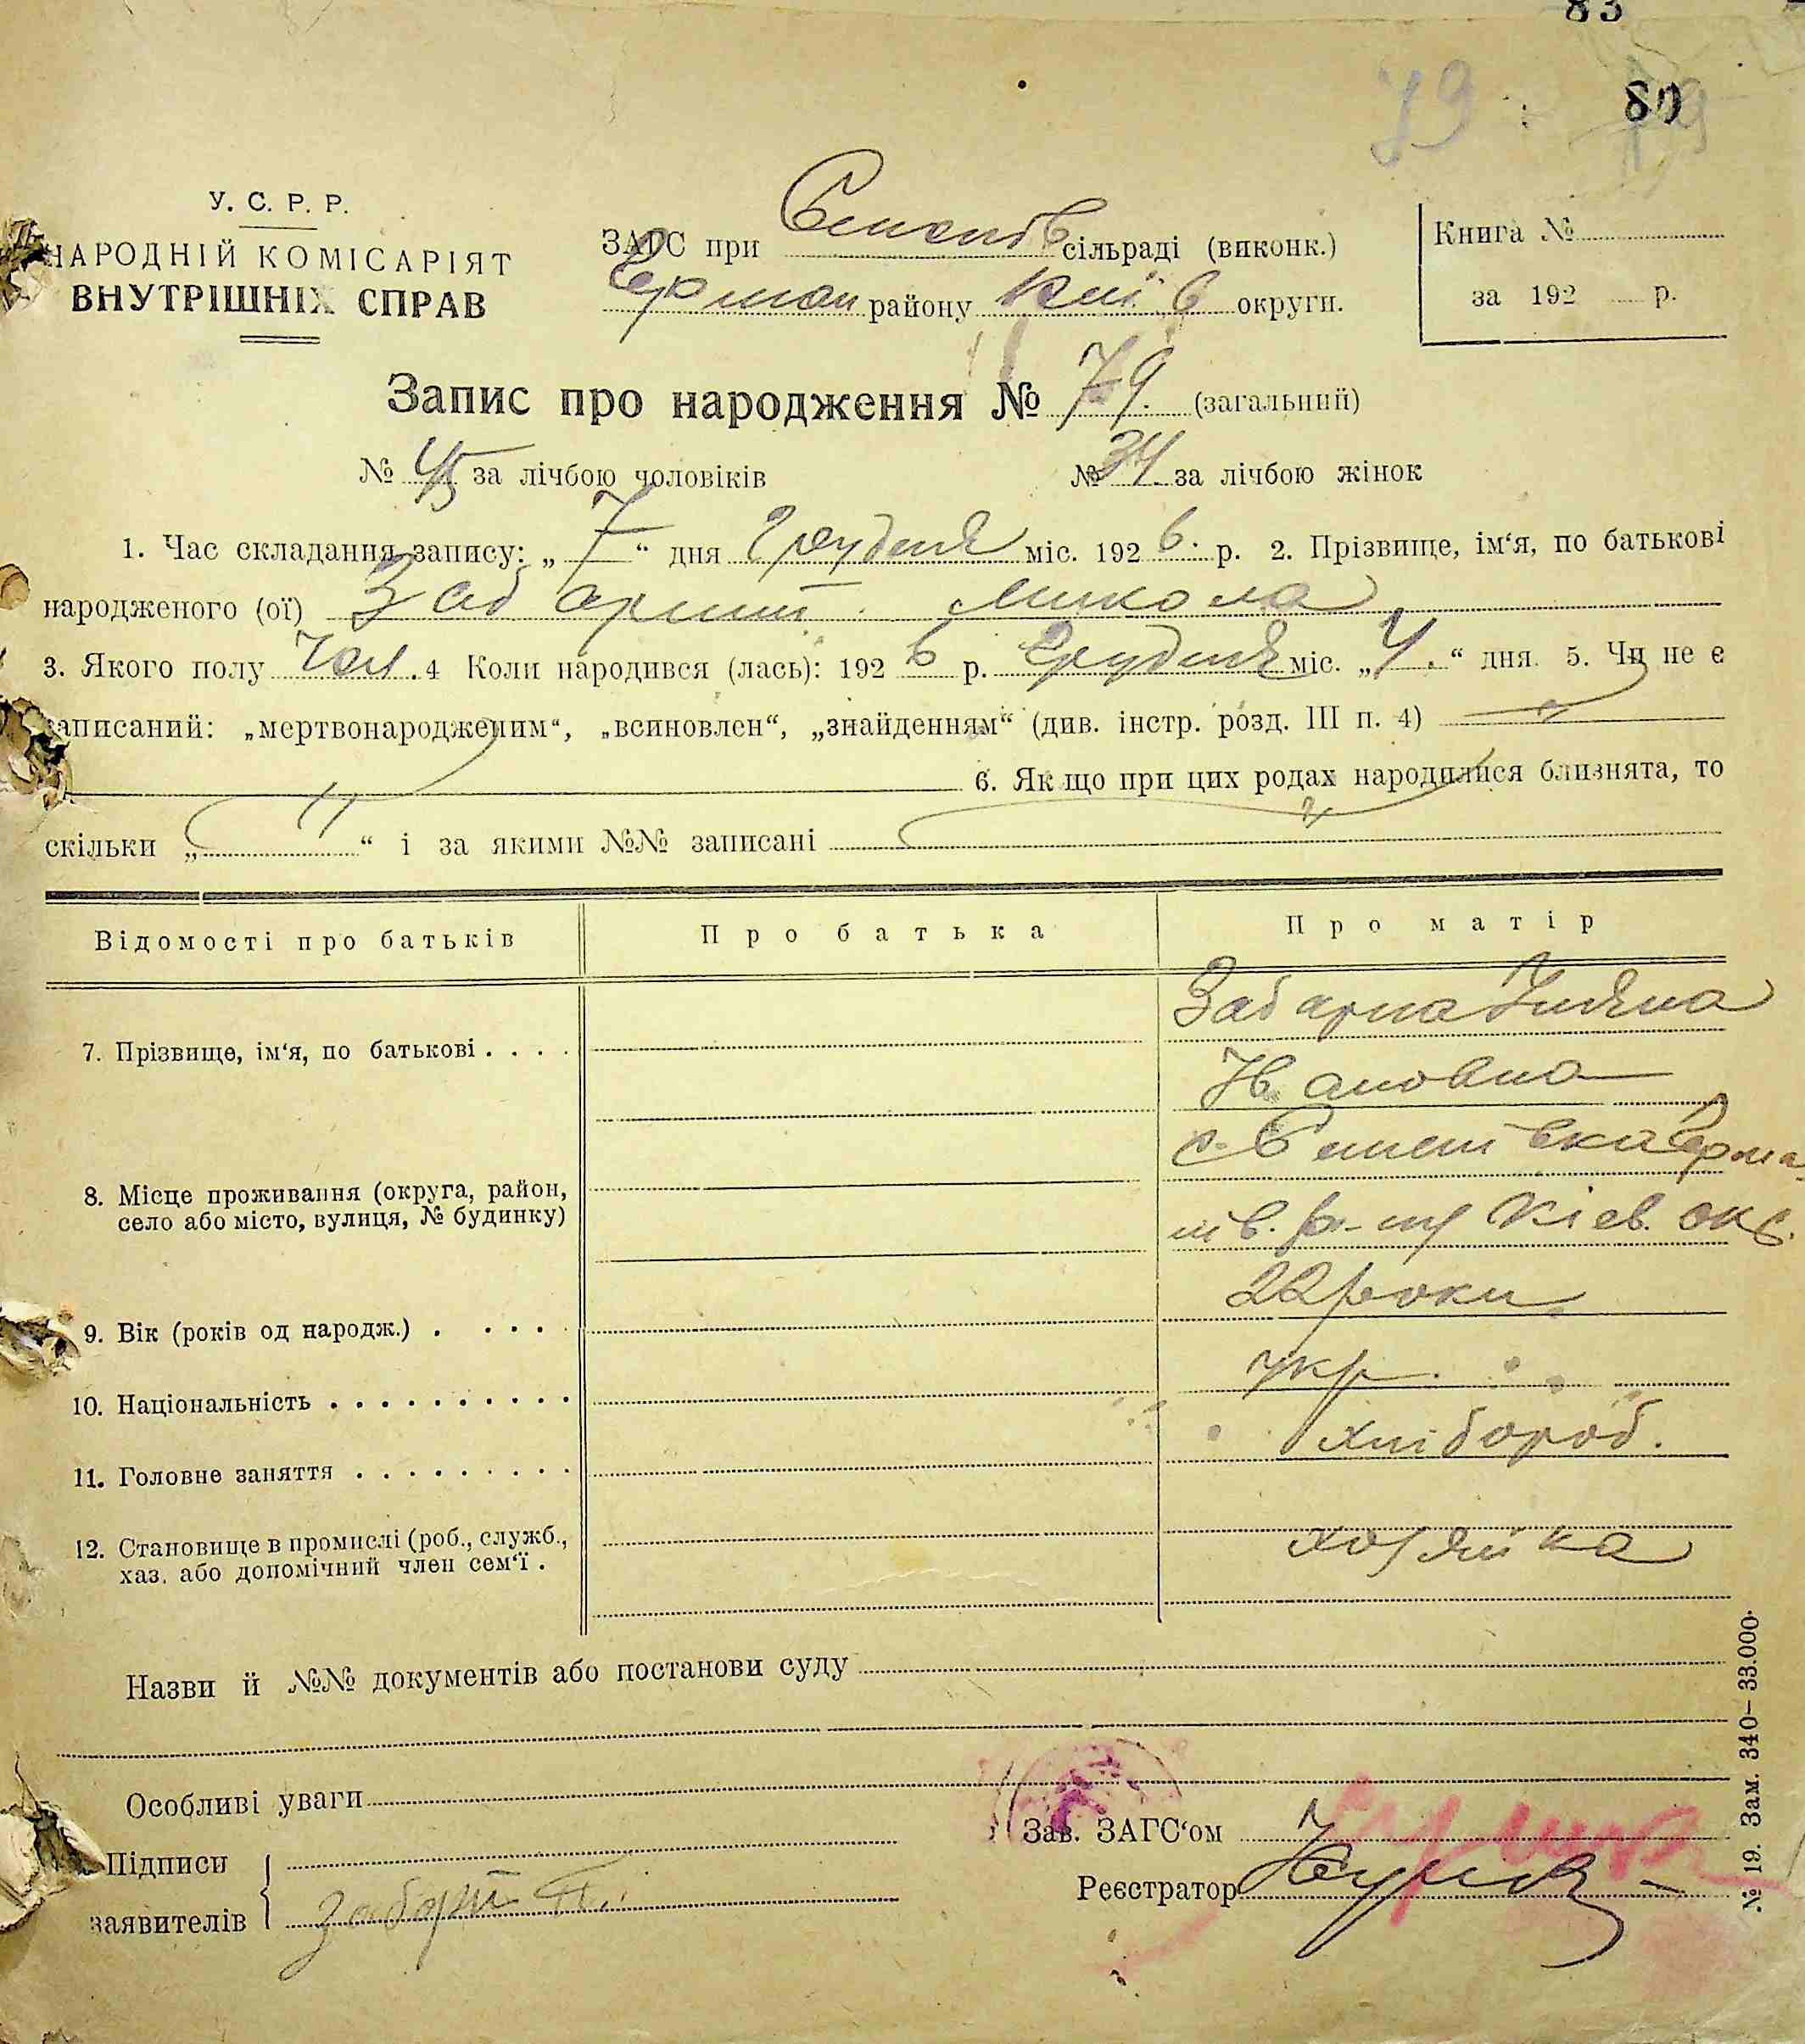 83
79
80
У. С. Р. Р.
НАРОДНІЙ КОМІСАРІЯТ
ВНУТРІШНІХ СПРАВ
ЗАГС при сільраді (виконк.)
району Київ округи.
Книга №
за 192 р.
Запис про народження № 79. (загальний)
№ 45 за лічбою чоловіків № 34 за лічбою жінок
1. Час складання запису: „ 7 “ дня Грудня міс. 192 6. р. 2. Прізвище, ім‘я, по батькові
народженого (ої) Забарний Микола
3. Якого полу Чол. 4 Коли народився (лась): 192 6 р. Грудня міс. „ 4. “ дня. 5. Чи не є
записаний: „мертвонародженим“, „всиновлен“, „знайденням“ (див. інстр. розд. III п. 4)
6. Якщо при цих родах народилися близнята, то
скільки „ “ і за якими №№ записані
Відомості про батьків Про батька Про матір
7. Прізвище, ім‘я, по батькові . . . . Забарна Уляна
Івановна
8. Місце проживання (округа, район,
село або місто, вулиця, № будинку)
р-ну Кіев. окр.
9. Вік (років од народж.) . . . . 22 роки
10. Національність . . . . . . . . . . укр.
11. Головне заняття . . . . . . . . . хлібороб.
12. Становище в промислі (роб., служб.,
хаз. або допомічний член сем‘ї . хозяйка
Назви й №№ документів або постанови суду
Особливі уваги
Зав. ЗАГС‘ом
Підписи
заявителів
Реєстратор
№ 19. Зам. 340—33.000.